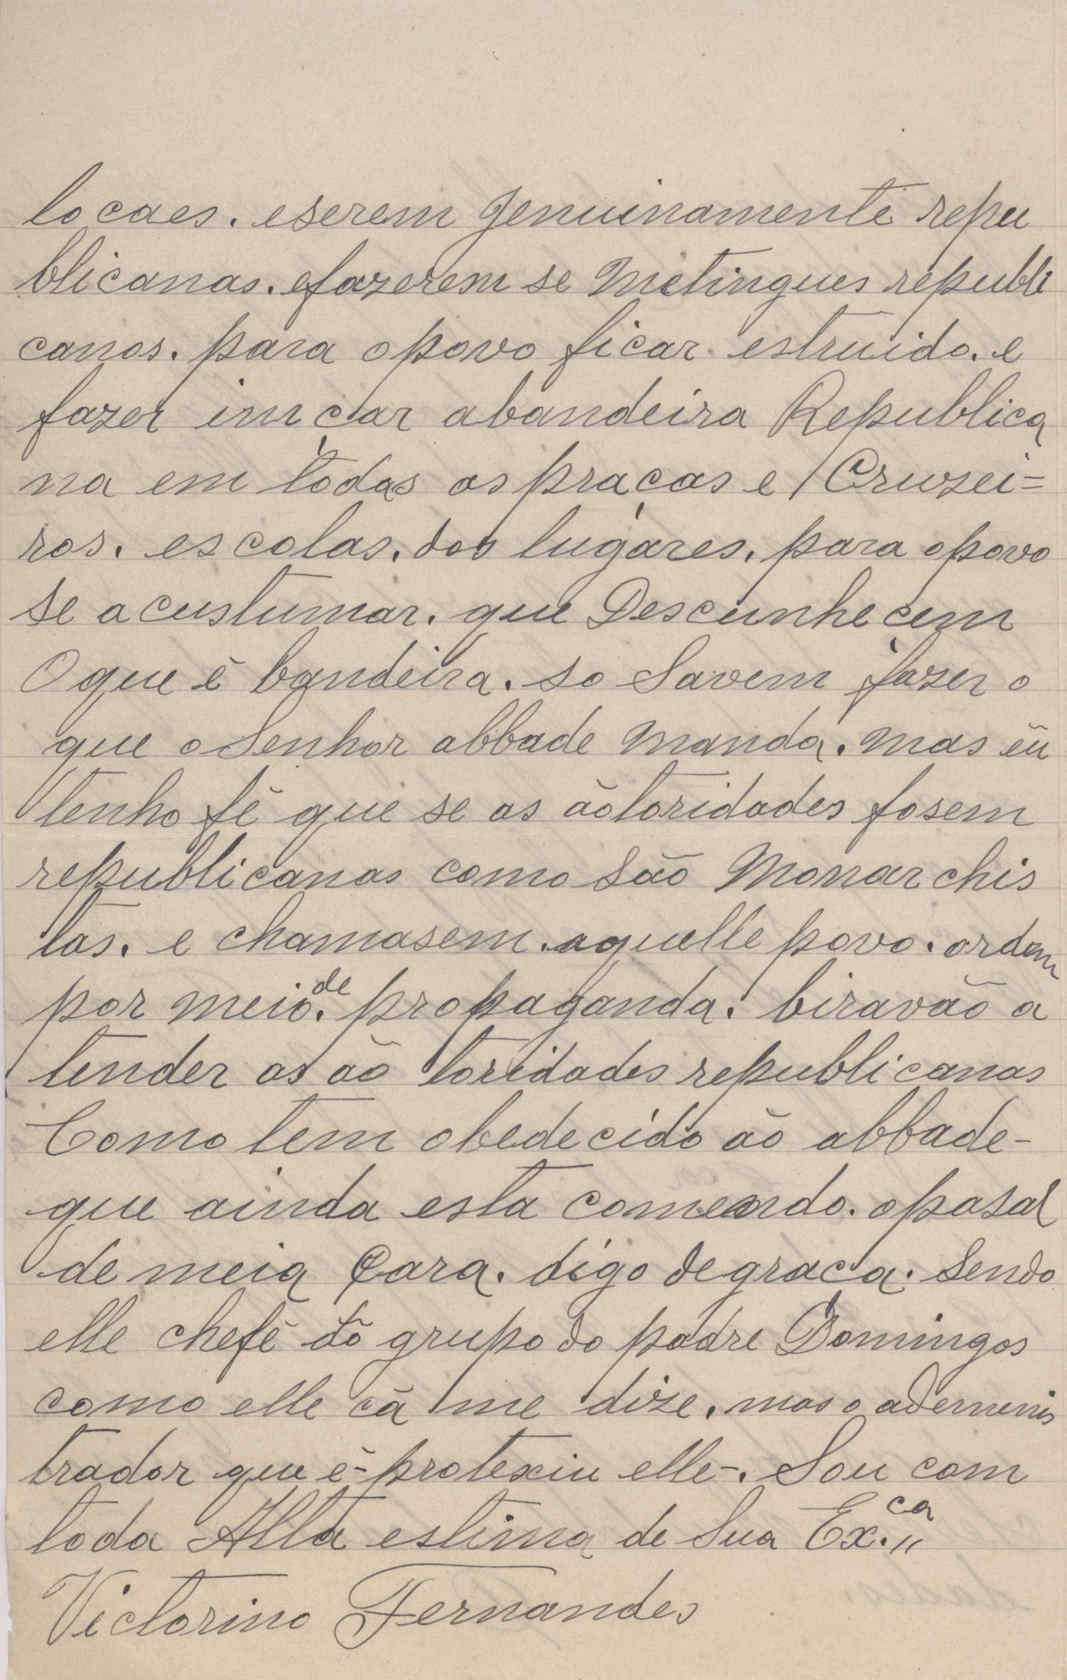 locaes. eserem genuinamente repu
blicanas. efazerem se Metingues republi
canos. para opovo ficar estruido. e
fazer imçar abandeira Republica
na em todas as praças e Cruzei=
ros. escolas. dos lugares. para opovo
se acustumar. que Descunhecem
O que é bandeira. so Savem fazer o
que o Senhor abbade manda. mas eu
tenho fé que se as ãotoridades fosem
republicanas como são Monarchis
tas. e chamasem. aquelle povo. ordem
por meio. de propaganda. biravão a
tender as ão toridades republicanas
Como tem obedecido ão abbade-
que ainda esta comendo. opasal
de meia Cara. digo degraça. Sendo
elle chefe do grupo do padre Domingos
como elle cá me dize. mas o aderminis
trador que é-protexiu elle-. Sou com
toda Alta estima de Sua Ex.ca
Victorino Fernandes